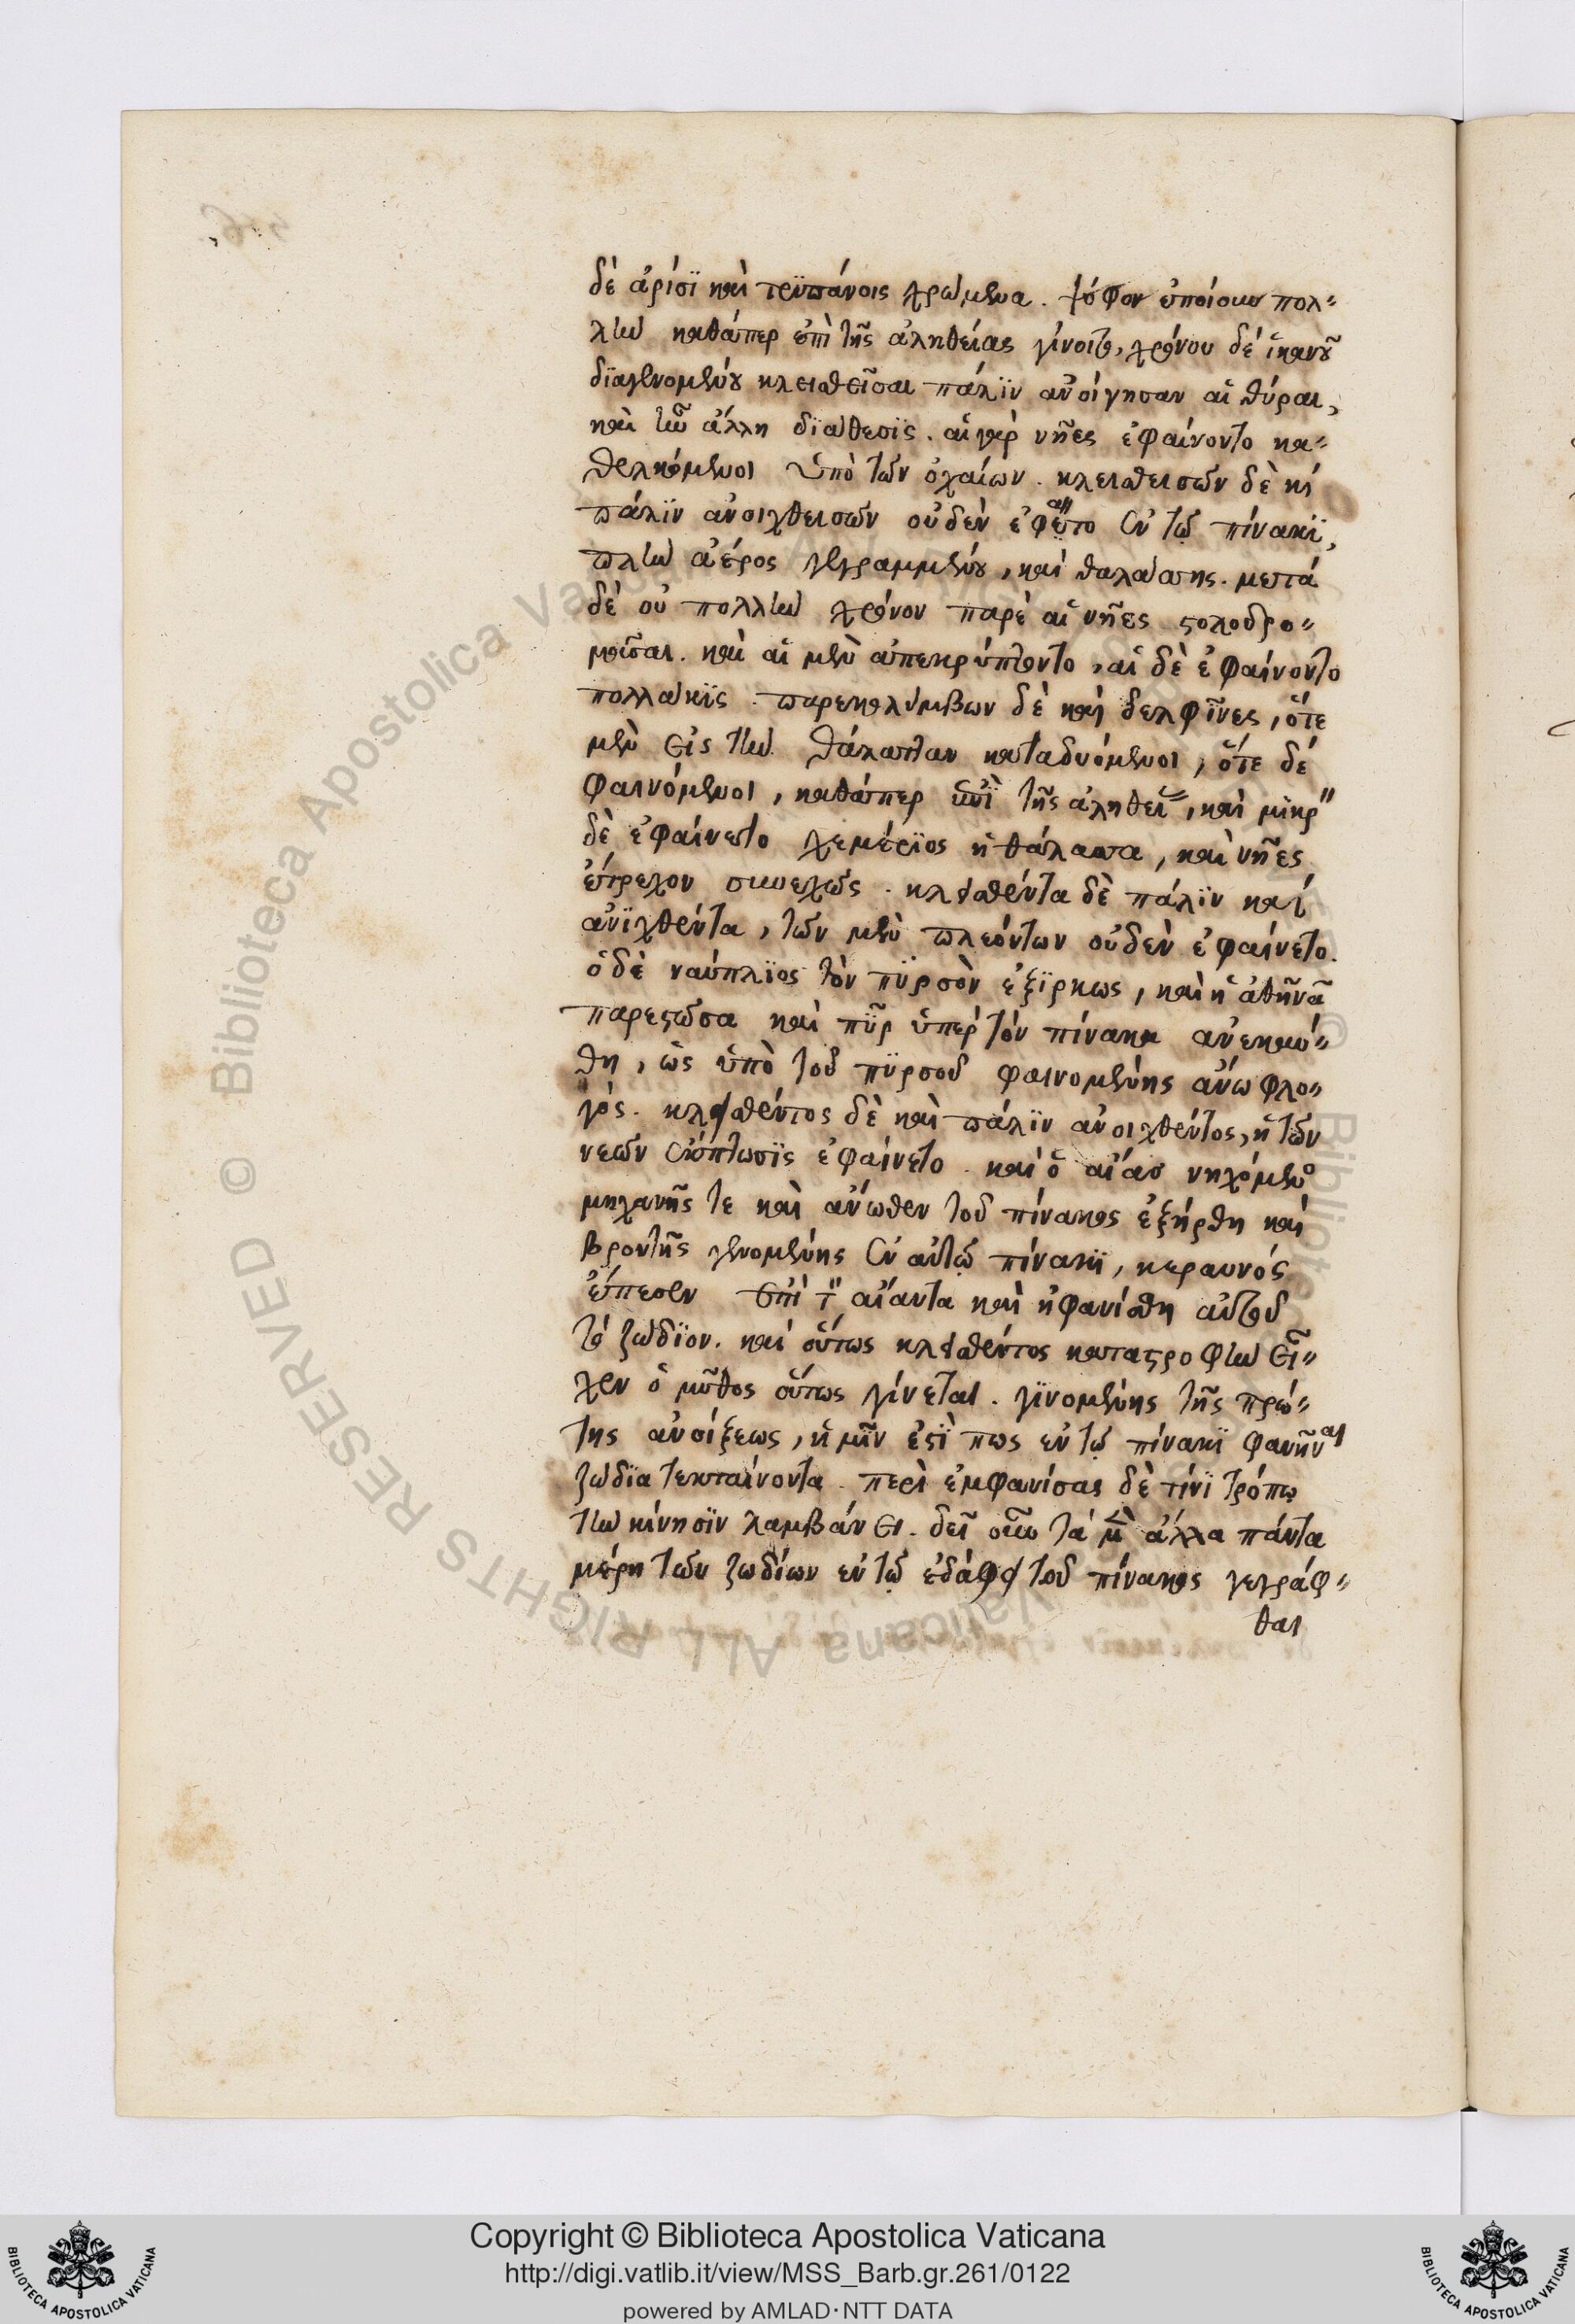 δὲ ἀρίσϊ καὶ τρϋπάνοις χρώμενα. ψόφον ἐποίουν πολ〃
λὴν καθάπερ ἐπὶ τῆς ἀληθείας γίνοιτο, χρόνου δὲ ἱκανοῦ
δϊαγενομένου κλεισθεῖσαι πάλϊν ἀνοίγησαν αἱ θύραι,
καὶ ἦν ἄλλη δϊάθεσϊς. αἱ γὰρ νῆες ἐφαίνοντο κα〃
θελκόμενοι ὑπὸ τῶν ἀχαίων. κλεισθεισῶν δὲ κὶ
πάλϊν ἀνοιχθεισῶν οὐδὲν ἐφαίνετο ἐν τῷ πίνακϊ,
πλὴν ἀέρος γεγραμμένου, καὶ θαλάσσης. μετά
δὲ οὐ πολλὴν χρόνον παρὲ αἱ νῆες στολοδρο〃
μοῖσαι. καὶ αἱ μὲν ἀπεκρύπτοντο, αἱ δὲ ἐφαίνοντο
πολλάκϊς. παρεκολύμβων δὲ καὶ δελφῖνες, ὅτε
μὲν εἰς τὴν θάλατταν καταδυόμενοι, ὅτε δὲ
φαινόμενοι, καθάπερ ἐπὶ τῆς ἀληθεί〃, καὶ μικρ〃
δὲ ἐφαίνετο χεμέρϊος ἡ θάλασσα, καὶ νῆες
ἔτρεχον συνεχῶς. κλεισθέντα δὲ πάλϊν καὶ
ἀνϊχθέντα, τῶν μὲν πλεόντων οὐδὲν ἐφαίνετο.
ὁ δὲ ναύπλϊος τὸν πϋρσὸν ἐξϊρκως, καὶ ἡ ἀθῆνᾶ
παρεστῶσα καὶ πῦρ ὑπὲρ τὸν πίνακα ἀνεκαύ〃
θη, ὡς ὑπὸ τοῦ πϋρσοῦ φαινομένης ἄνω φλο〃
γός. κλεισθέντος δὲ καὶ πάλϊν ἀνοιχθέντος, ἡ τῶν
νεῶν ἔκπτωσϊς ἐφαίνετο. καὶ ὁ αἴας νηχόμενο
μηχανῆς τε καὶ ἄνωθεν τοῦ πίνακος ἐξήρθη καὶ
βροντῆς γενομένης ἐν αὐτῷ πίνακϊ, κεραυνός
ἔπεσεν ἐπὶ τ〃 αἴαντα καὶ ἠφανίσθη αὐτοῦ
τὸ ζώδϊον. καὶ οὕτως κλεισθέντος καταστροφὴν εἶ〃
χεν ὁ μῦθος οὕτως γίνεται. γϊνομένης τῆς πρώ〃
της ἀνοίξεως, ἡ μῖν ἐστϊ πως ἐν τῷ πίνακϊ φανῆναι
ζώδϊα τεκταίνοντα. περὶ ἐμφανίσας δὲ τίνϊ τρόπῳ
τὴν κίνησϊν λαμβάνει. δεῖ οὖν τὰ μὲν ἄλλα πάντα
μέρη τῶν ζωδίων ἐν τῷ ἐδάφει τοῦ πίνακος γεγράφ〃
θαι
Copyright © Biblioteca Apostolica Vaticana
http://digi.vatlib.it/view/MSS_Barb.gr.261/0122
powered by AMLAD·NTT DATA
BIBLIOTECA APOSTOLICA VATICANA
BIBLIOTECA APOSTOLICA VATICANA
© Biblioteca Apostolica Vaticana ALL RIGHTS RESERVED